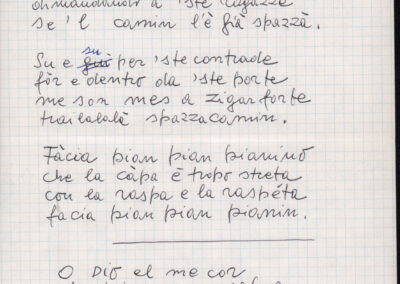 domandando a 'ste ragazze
se 'l camin l'è già spazzà.
Su e giù su per 'ste contrade
fôr e dentro da 'ste porte
me son mes a zigar forte
trailalalà spazzacamin.
Fàcia pian pian pianino
che la càpa è tropo streta
con la raspa e la raspéta
facia pian pian pianin.
O Dio el me cor